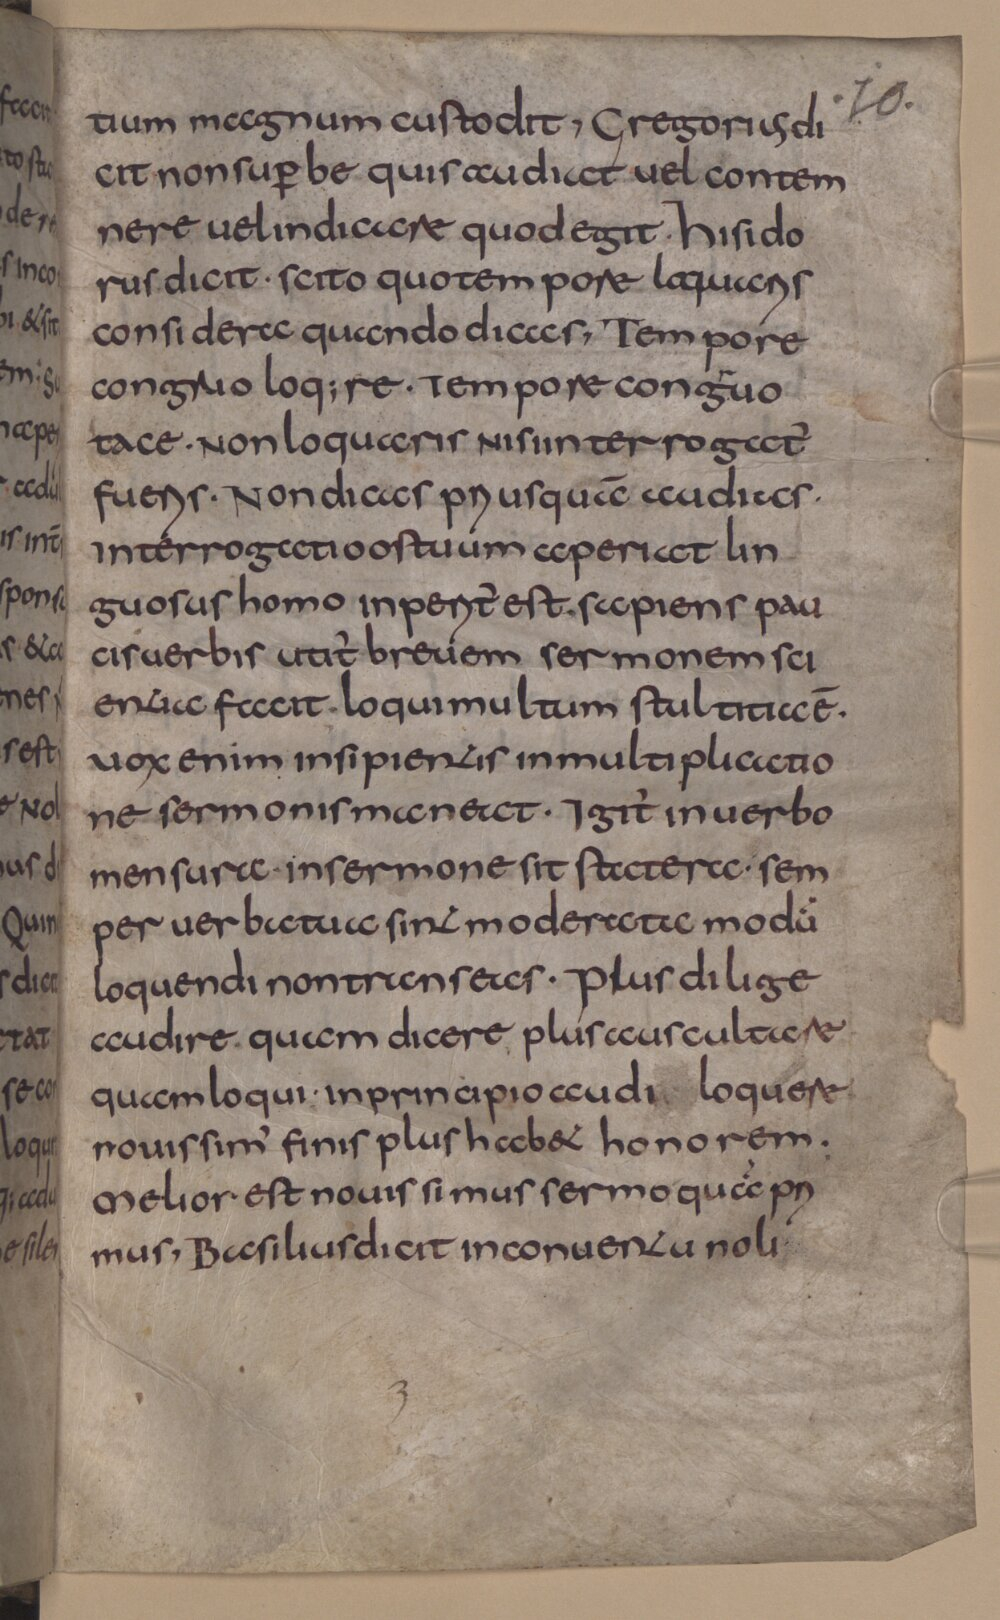 ·10·
tium magnum custodit, Gregorius di
cit non superbe quis audiat uel contem
nere uel indicare quod egit. hisido
rus dicit. scito quo tempore loquaris
considera quando dicas, Tempore
congruo loq;re. tempore congruo
tace. Non loquaris nisi interrogat̄
fueris. Non dicas priusquā audias.
interrogatio os tuum aperiat lin
guosus homo inperit̄ est. sapiens pau
cis uerbis utit̄ breuem sermonem sci
entia facit. loqui multum stultitia ē.
uox enim insipientis in multiplicatio
ne sermonis maneat. Igit̄ in uerbo
mensura. in sermone sit statera. sem
per uerba tua sint moderata modū
loquendi non transeas. Plus dilige
audire quam dicere plus auscultare
quam loqui. in principio audi loquere
nouissim̄ finis plus hab& honorem.
Melior est nouissimus sermo quā pri
mus, Basilius dicit in conuentu noli
3